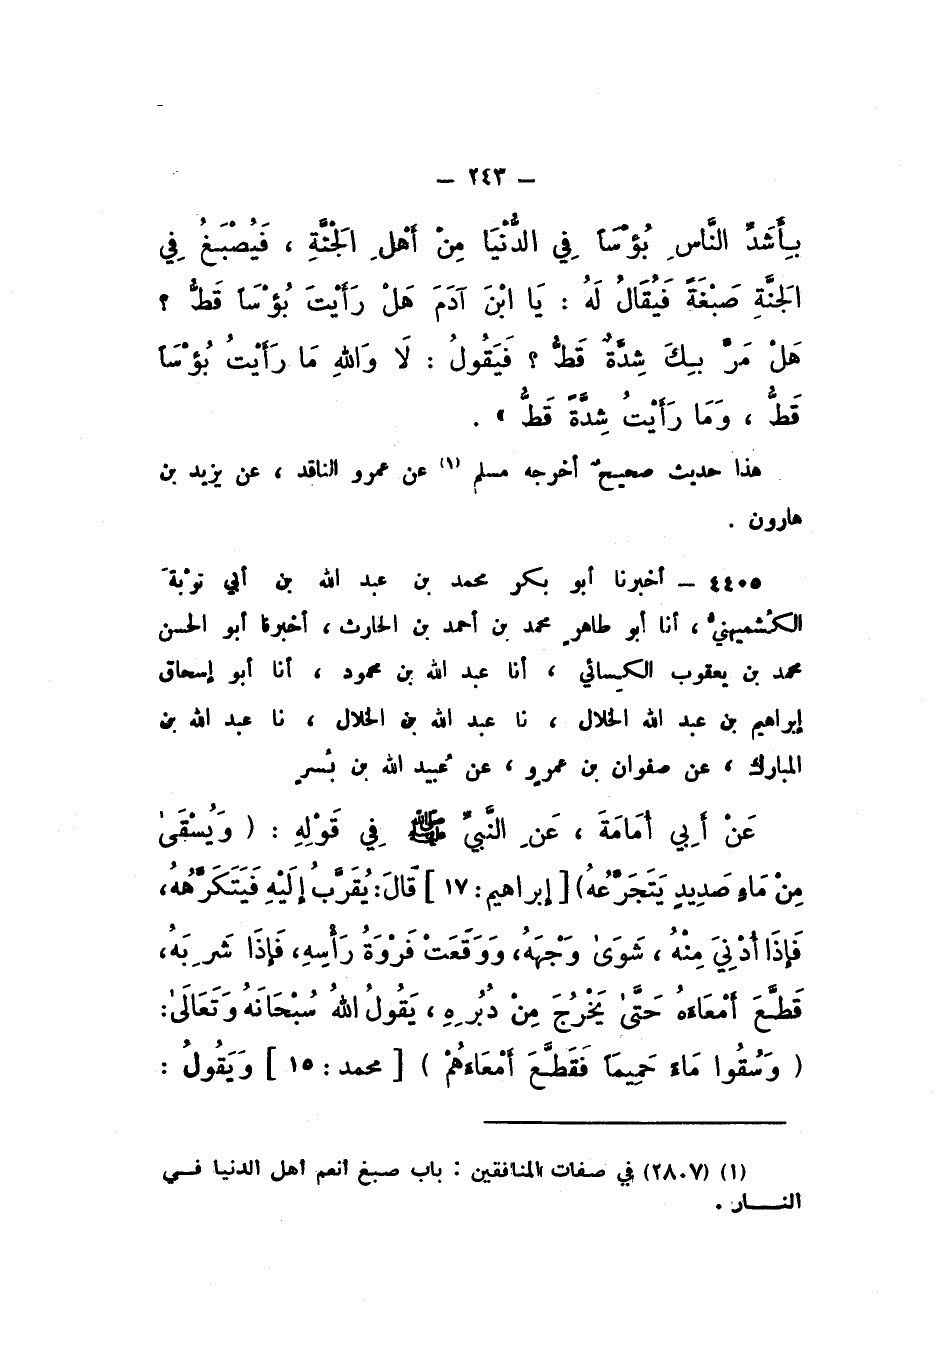 – ٢٤٣ –
بِأَشَدِّ النَّاسِ بُؤْسَاً فِي الدُّنْيَا مِنْ أَهْلِ الجَنَّةِ ، فَيُصْبَغُ فِي
الجَنَّةِ صَبْغَةً فَيُقَالُ لَهُ : يَا ابْنَ آدَمَ هَلْ رَأَيْتَ بُؤْسَاً قَطُّ ؟
هَلْ مَرَّ بِكَ شِدَّةٌ قَطُّ ؟ فَيَقُولُ : لَا وَاللهِ مَا رَأَيْتُ بُؤْسَاً
قَطُّ ، وَمَا رَأَيْتُ شِدَّةً قَطُّ » .
هذا حديث صحيحٌ أخرجه مسلم (١) عن عمرو الناقد ، عن يزيد بن
هارون .
٤٤٠٥ – أخبرنا أبو بكر محمد بن عبد الله بن أبي توْبةَ
الكُشميهنيُّ ، أنا أبو طاهرٍ محمد بن أحمد بن الحارث ، أخبرنا أبو الحسن
محمد بن يعقوب الكِسائي ، أنا عبد الله بن محمود ، أنا أبو إسحاق
إبراهيم بن عبد الله الخلال ، نا عبد الله بن الخلال ، نا عبد الله بن
المبارك ، عن صفوان بن عمرٍو ، عن عُبيد الله بن بُسرٍ
عَنْ أَبِي أُمَامَةَ ، عَنِ النَّبِيِّ ﷺ فِي قَوْلِهِ : ( وَيُسْقَىٰ
مِنْ مَاءٍ صَدِيدٍ يَتَجَرَّعُهُ) [ إبراهيم : ١٧ ] قَالَ: يُقَرَّبُ إِلَيْهِ فَيَتَكَرَّهُهُ،
فَإِذَا أُدْنِيَ مِنْهُ ، شَوَىٰ وَجْهَهُ، وَوَقَعَتْ فَرْوَةُ رَأْسِهِ، فَإِذَا شَرِبَهُ،
قَطَّعَ أَمْعَاءَهُ حَتَّىٰ يَخْرُجَ مِنْ دُبُرِهِ ، يَقُولُ اللهُ سُبْحَانَهُ وَتَعَالَىٰ:
( وَسُقُوا مَاءً حَمِيمَاً فَقَطَّعَ أَمْعَاءَهُمْ ) [ محمد : ١٥ ] وَيَقُولُ :
(١) (٢٨٠٧) في صفات المنافقين : باب صبغ أنعم أهل الدنيا فــي
النـــــار .